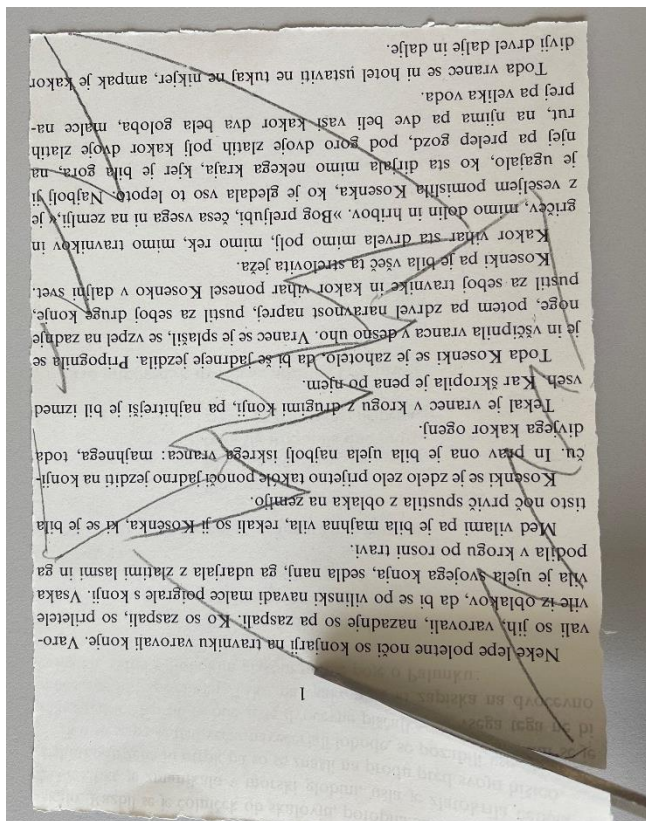 1
Neke lepe poletne noči so konjarji na travniku varovali konje. Varo-
vali so jih, varovali, nazadnje so pa zaspali. Ko so zaspali, so priletele
vile iz oblakov, da bi se po vilinski navadi malce poigrale s konji. Vsaka
vila je ujela svojega konja, sedla nanj, ga udarjala z zlatimi lasmi in ga
podila v krogu po rosni travi.
Med vilami pa je bila majhna vila, rekali so ji Kosenka, ki se je bila
tisto noč prvič spustila z oblaka na zemljo.
Kosenki se je zdelo zelo prijetno takole ponoči jadrno jezditi na konji-
ču. In prav ona je bila ujela najbolj iskrega vranca: majhnega, toda
divjega kakor ogenj.
Tekal je vranec v krogu z drugimi konji, pa najhitrejši je bil izmed
vseh. Kar škropila je pena po njem.
Toda Kosenki se je zahotelo, da bi še jadrneje jezdila. Pripognila se
je in vščipnila vranca v desno uho. Vranec se je splašil, se vzpel na zadnje
noge, potem pa zdrvel naravnost naprej, pustil za seboj druge konje,
pustil za seboj travnike in kakor vihar ponesel Kosenko v daljni svet.
Kosenki pa je bila všeč ta strelovita ježa.
Kakor vihar sta drvela mimo polj, mimo rek, mimo travnikov in
gričev, mimo dolin in hribov. »Bog preljubi, česa vsega ni na zemlji,« je
z veseljem pomislila Kosenka, ko je gledala vso to lepoto. Najbolj ji
je ugajalo, ko sta dirjala mimo nekega kraja, kjer je bila gora, na
njej pa prelep gozd, pod goro dvoje zlatih polj kakor dvoje zlatih
rut, na njima pa dve beli vasi kakor dva bela goloba, malce na-
prej pa velika voda.
Toda vranec se ni hotel ustaviti ne tukaj ne nikjer, ampak je kakor
divji drvel dalje in dalje.